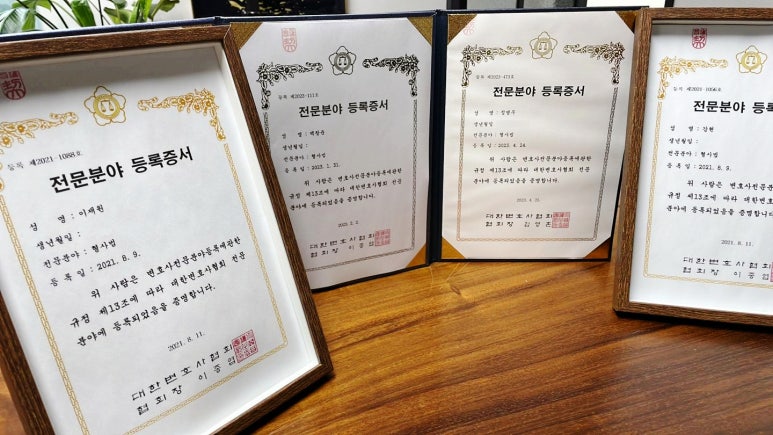 등록 제2021-1088호
전문분야 등록증서
성 명 : 이재원
생년월일 :
전문분야 : 형사법
등 록 일 : 2021. 8. 9.
위 사람은 변호사전문분야등록에관한
규정 제13조에 따라 대한변호사협회 전문
분야에 등록되었음을 증명합니다.
2021. 8. 11.
대한변호사협회
협회장 이종엽
전문분야 등록증서
생년월일 :
전문분야 : 형사법
등 록 일 : 2023. 1. 31.
위 사람은 변호사전문분야등록에관한
규정 제13조에 따라 대한변호사협회 전문
분야에 등록되었음을 증명합니다.
대한변호사협회
협회장 이종엽
전문분야 등록증서
생년월일
전문분야 : 형사법
등 록 일 : 2023. 4. 24.
위 사람은 변호사전문분야등록에관한
규정 제13조에 따라 대한변호사협회 전문
분야에 등록되었음을 증명합니다.
대한변호사협회
협회장 김영훈
등록 제2021-1056호
전문분야 등록증
성 명 : 강현
생년월일 :
전문분야 : 형사법
등 록 일 : 2021. 8. 9.
위 사람은 변호사전문분야
규정 제13조에 따라 대한변호사
분야에 등록되었음을 증명합
2021. 8. 11.
대한변호사협회
협회장 이종엽